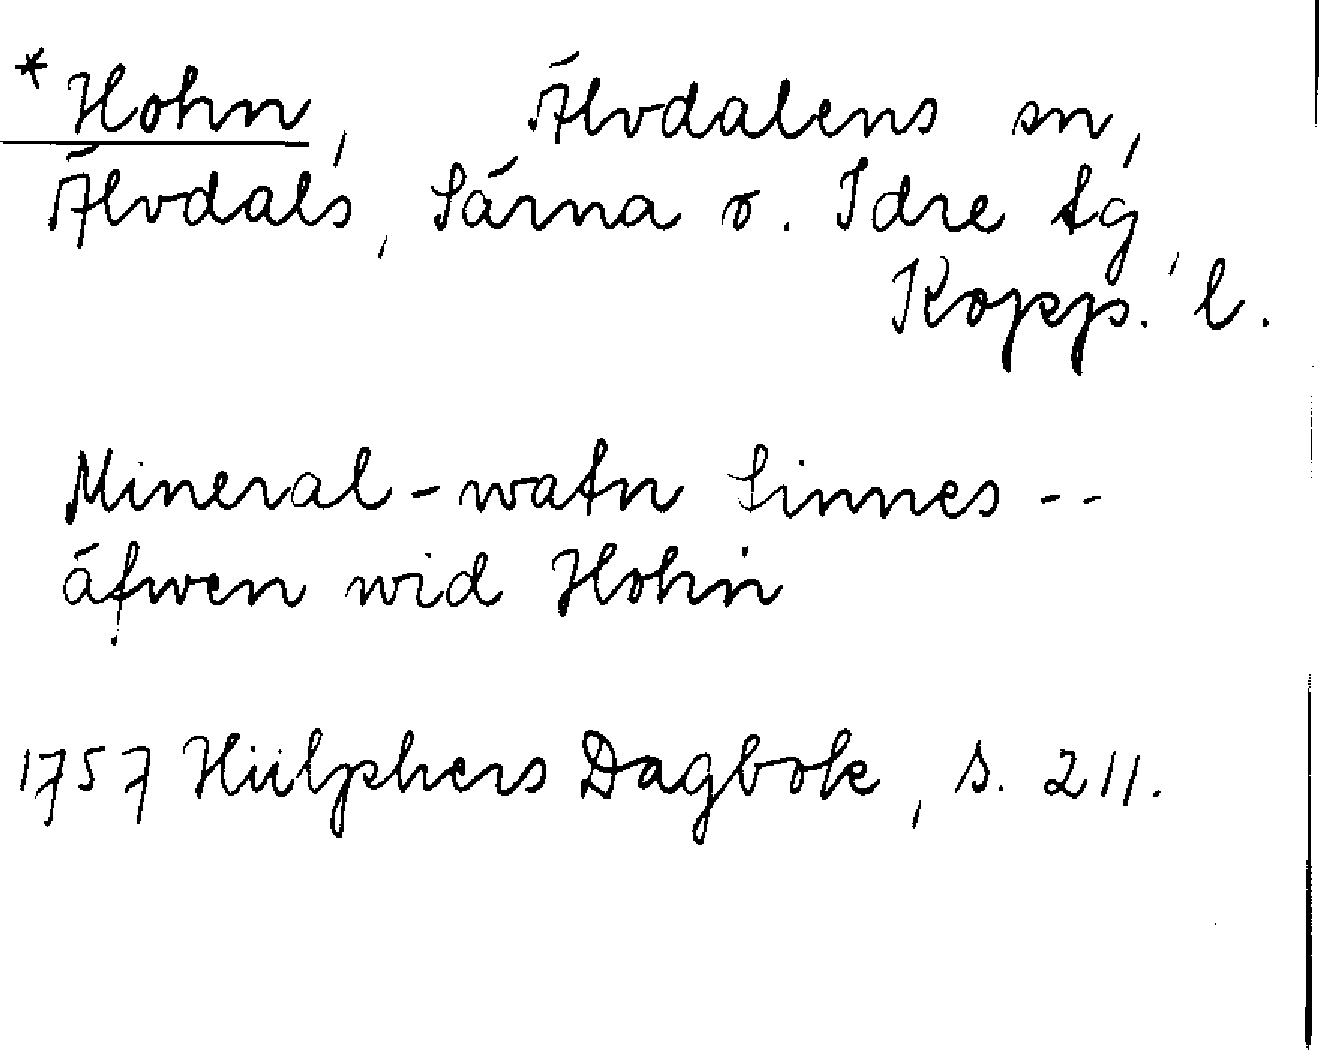 * Hohn, Älvdalens sn,
Älvdals, Särna o. Idre tg,
Kopp. l.
Mineral-watn finnes --
äfwen wid Hohn
1757 Hülphers Dagbok, s. 211.